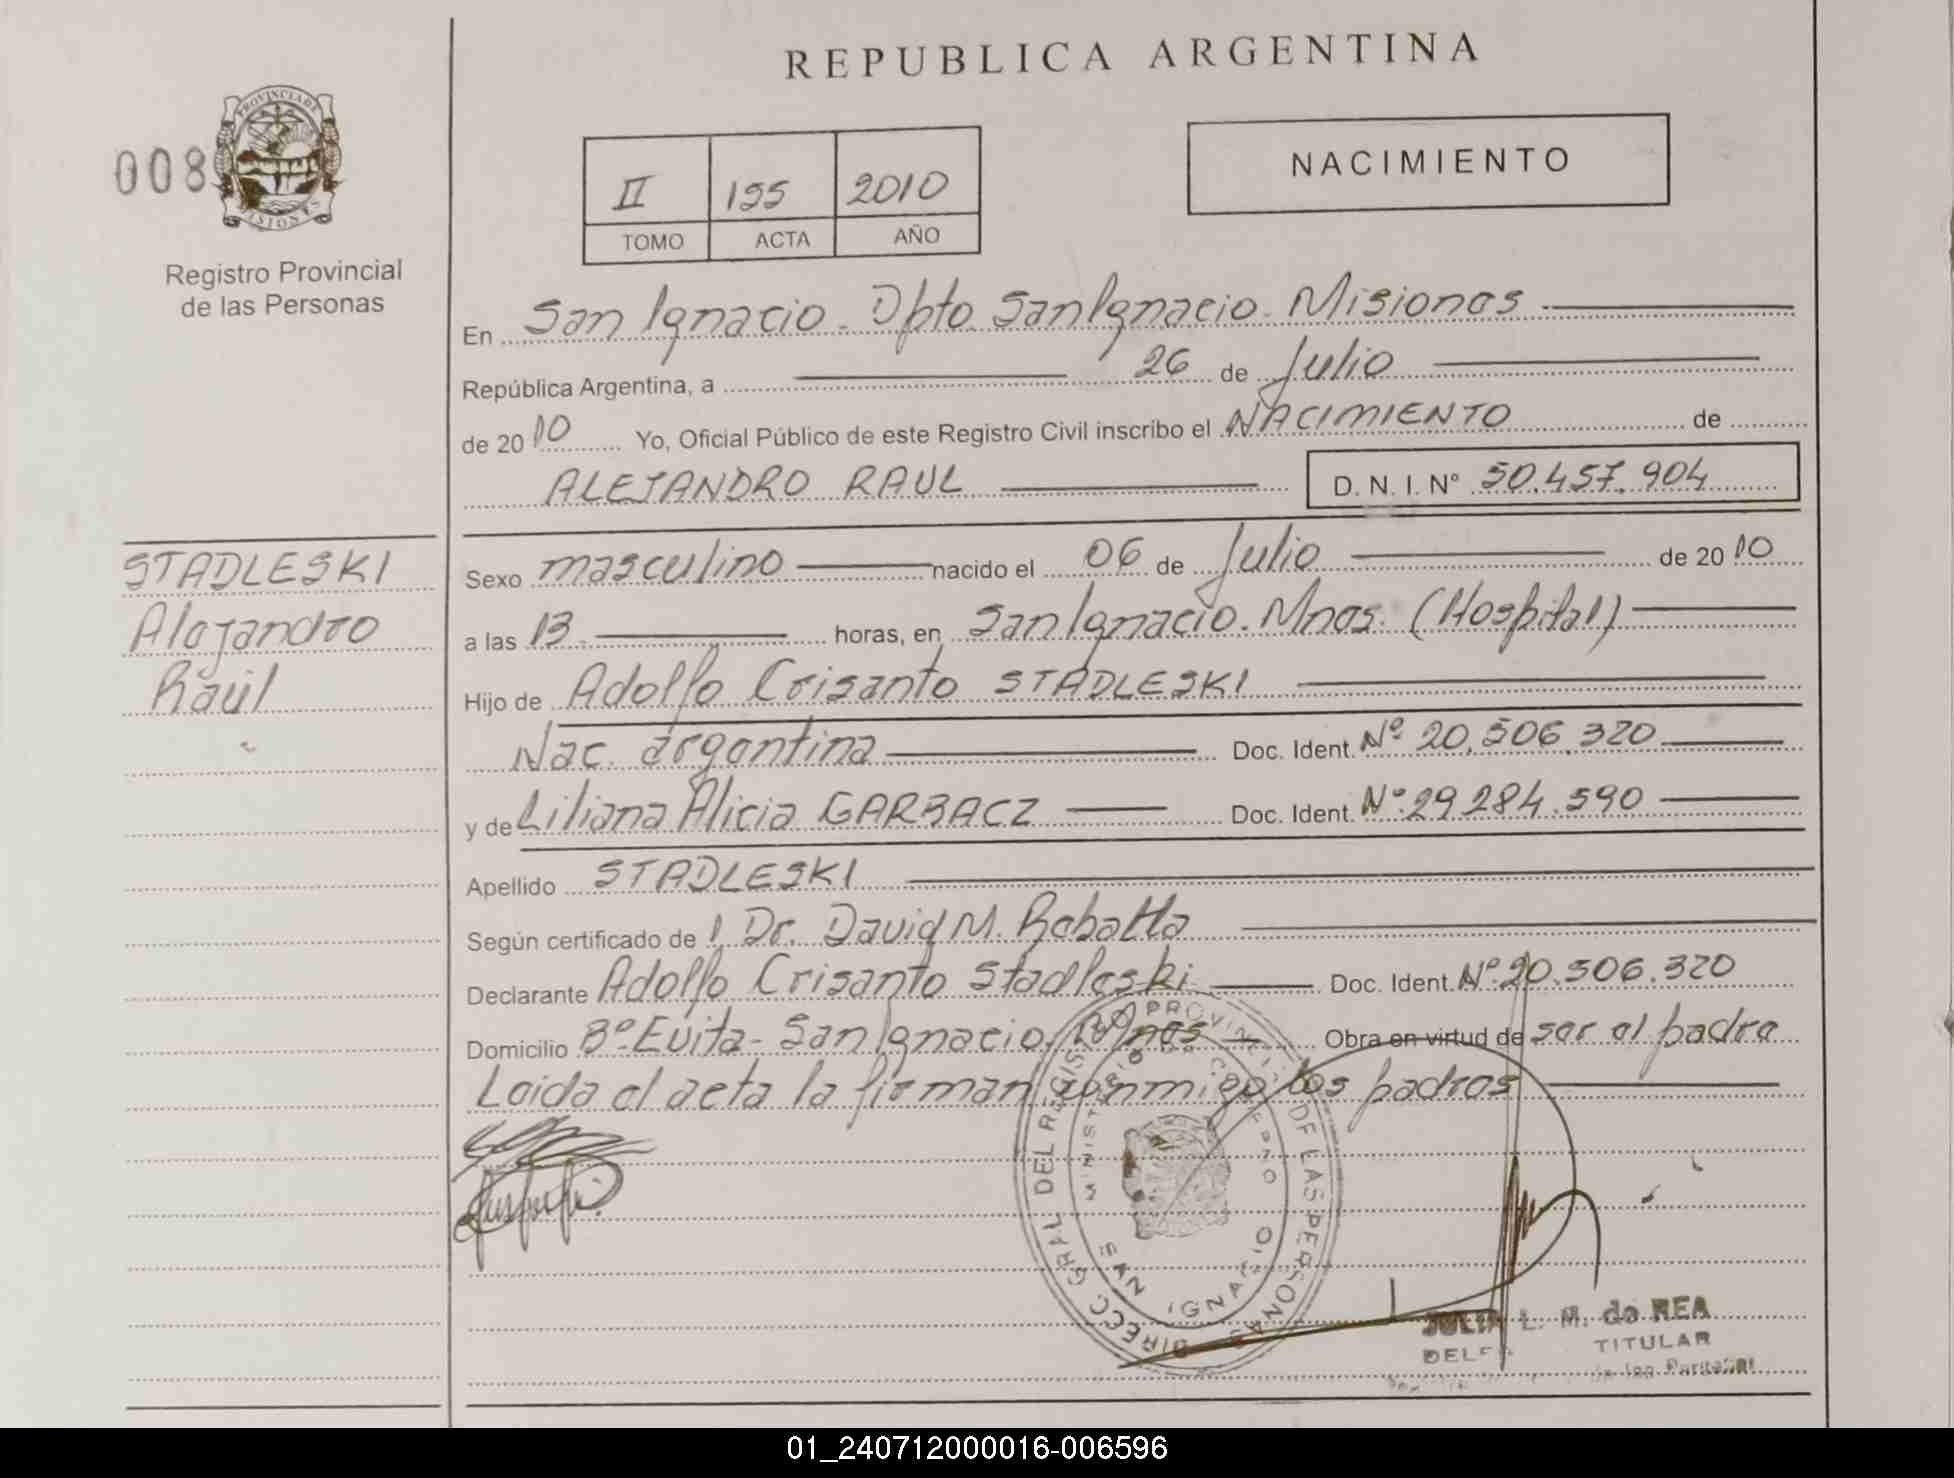 REPUBLICA ARGENTINA
008
PROVINCIA DE
MISIONES
Registro Provincial
de las Personas
II 155 2010
TOMO ACTA AÑO
NACIMIENTO
En San Ignacio. Dpto San Ignacio. Misiones
República Argentina, a 26 de Julio
de 2010 Yo, Oficial Público de este Registro Civil inscribo el NACIMIENTO de
ALEJANDRO RAUL D. N. I. N° 50.457.904
STADLESKI
Alejandro
Raúl
Sexo masculino nacido el 06 de Julio de 2010
a las 13 horas, en San Ignacio. Mnes. (Hospital)
Hijo de Adolfo Crisanto STADLESKI
Nac. argentina Doc. Ident. Nº 20.506.320
y de Liliana Alicia GARBACZ Doc. Ident. Nº 29.284.590
Apellido STADLESKI
Según certificado de l Dr. David M. Rebatta
Declarante Adolfo Crisanto Stadleski Doc. Ident. Nº 20.506.320
Domicilio Bº Evita - San Ignacio, Mnes Obra en virtud de ser el padre
Leida el acta la firman conmigo los padres
DIRECC GRAL DEL REGISTRO PROVINCIAL DE LAS PERSONAS
SAN IGNACIO
JULIA L. M. de REA
TITULAR
01_240712000016-006596